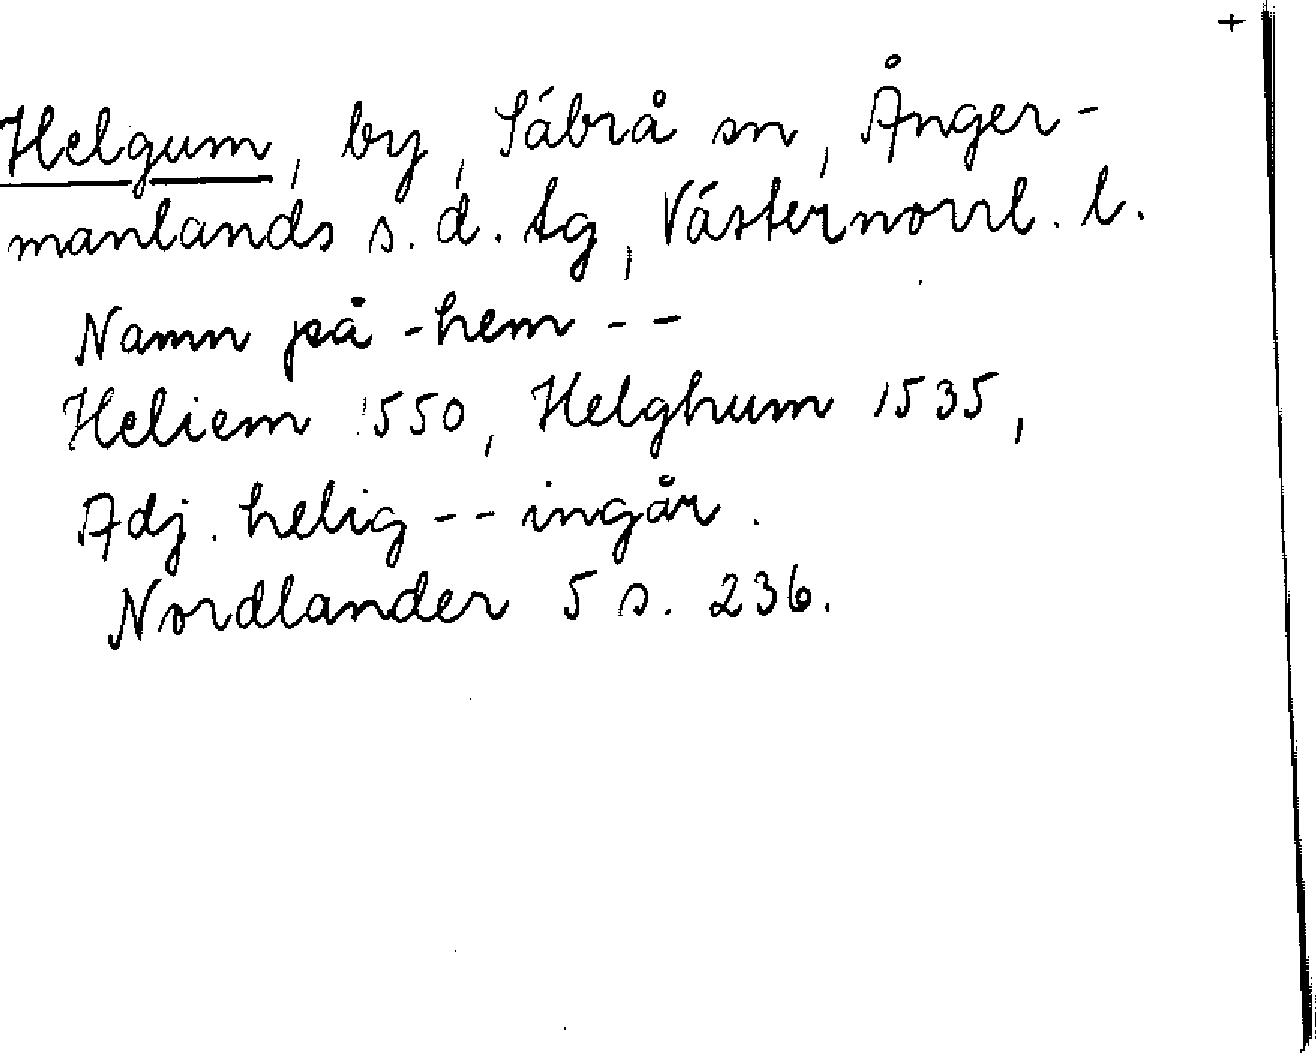 +
Helgum, by, Säbrå sn, Ånger-
manlands s. d. tg, Västernorrl. l.
Namn på -hem - -
Heliem 1550, Helghum 1535,
Adj. helig - - ingår.
Nordlander 5 s. 236.